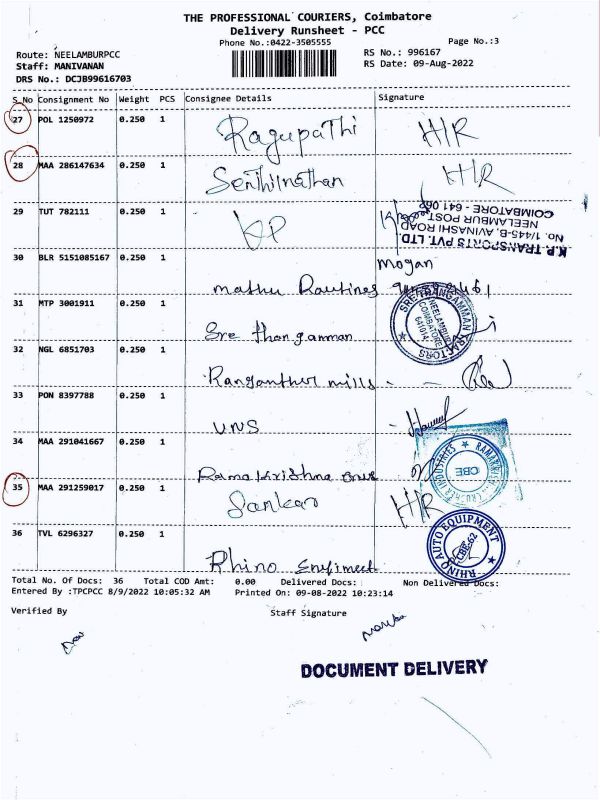 THE PROFESSIONAL COURIERS, Coimbatore
Delivery Runsheet - PCC
Phone No.:0422-3505555
Page No.:3
Route: NEELAMBURPCC
RS No.: 996167
Staff: MANIVANAN
RS Date: 09-Aug-2022
DRS No.: DCJB99616703
S_No Consignment No Weight PCS Consignee Details Signature
27 POL 1250972 0.250 1 Ragupathi H/R
28 MAA 286147634 0.250 1 Senthilnathan H/R
29 TUT 782111 0.250 1 KP
K.P. TRANSPORTS PVT. LTD.
No. 1/445-B, AVINASHI ROAD
NEELAMBUR POST
COIMBATORE - 641 062
30 BLR 5151085167 0.250 1 mathu Routines Mogan
31 MTP 3001911 0.250 1 Sre thangamman
SREE THANGAMMAN TRACTORS
NEELAMBUR
COIMBATORE
641014
32 NGL 6851703 0.250 1 Ranganther mills
33 PON 8397788 0.250 1 UNS
34 MAA 291041667 0.250 1 Ramakrishna
CRUSHER INDUSTRIES
CBE
35 MAA 291259017 0.250 1 Sankar H/R
36 TVL 6296327 0.250 1 Rhino
RHINO AUTO EQUIPMENT
CBE-62
Total No. Of Docs: 36 Total COD Amt: 0.00 Delivered Docs: Non Delivered Docs:
Entered By :TPCPCC 8/9/2022 10:05:32 AM Printed On: 09-08-2022 10:23:14
Verified By Staff Signature
DOCUMENT DELIVERY